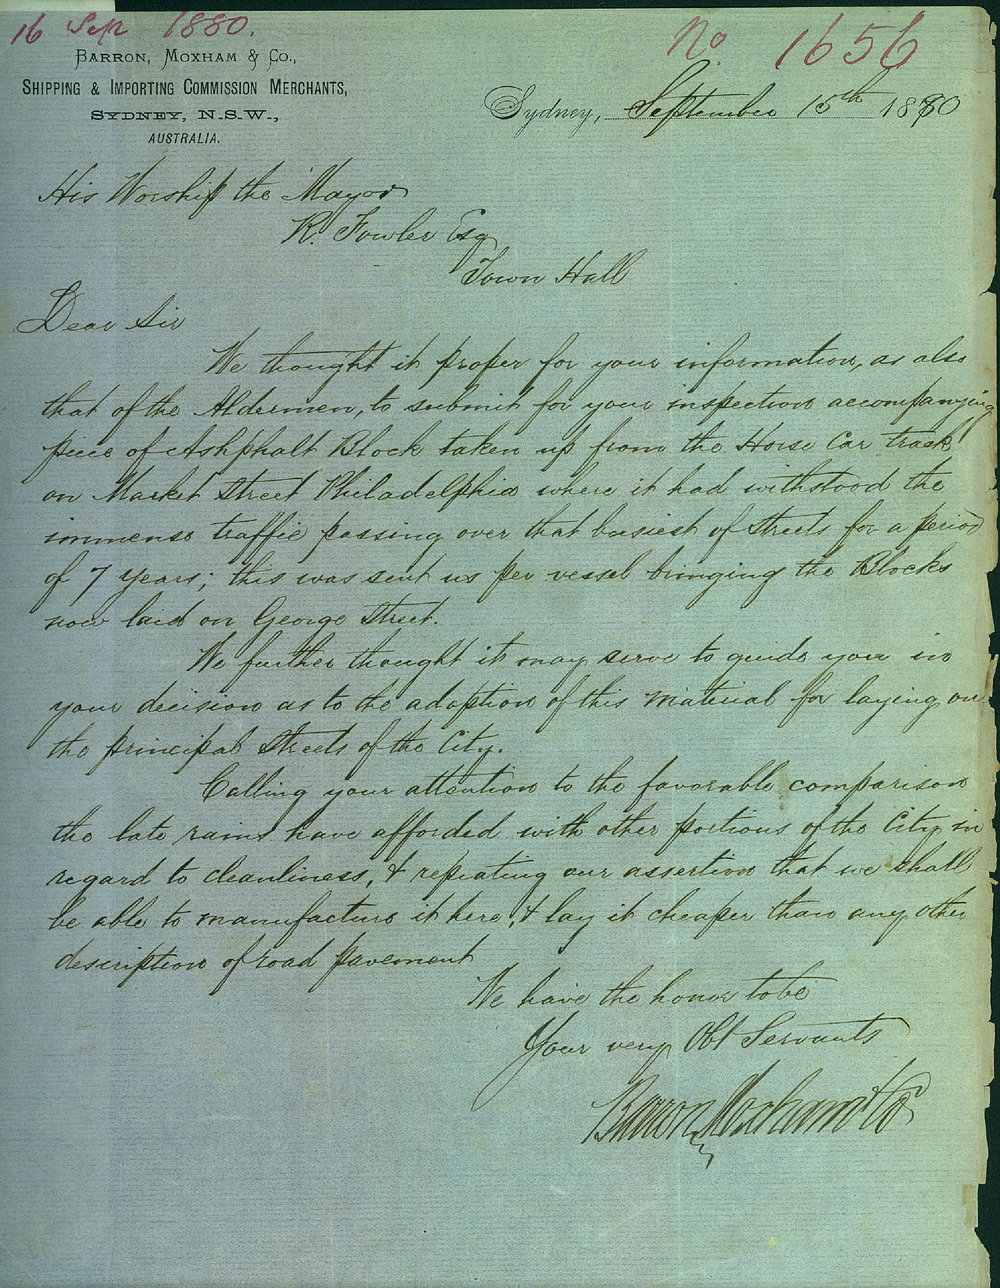 16 Sep 1880.
No. 1656
BARRON, MOXHAM & CO.,
SHIPPING & IMPORTING COMMISSION MERCHANTS,
SYDNEY, N.S.W.,
AUSTRALIA.
Sydney, September 15th 1880
His Worship the Mayor
R. Fowler Esq
Town Hall
Dear Sir
We thought it proper for your information, as also
that of the Aldermen, to submit for your inspection accompanying
piece of Ashphalt Block taken up from the Horse Car track
on Market Street Philadelphia where it had withstood the
immense traffic passing over that busiest of Streets for a period
of 7 years; this was sent us per vessel bringing the Blocks
now laid on George Street.
We further thought it may serve to guide you in
your decision as to the adoption of this material for laying on
the principal Streets of the City.
Calling your attention to the favorable comparison
the late rains have afforded with other portions of the City in
regard to cleanliness, & repeating our assertion that we shall
be able to manufacture it here, & lay it cheaper than any other
description of road pavement
We have the honor to be
Your very Obt Servants
Barron Moxham & Co